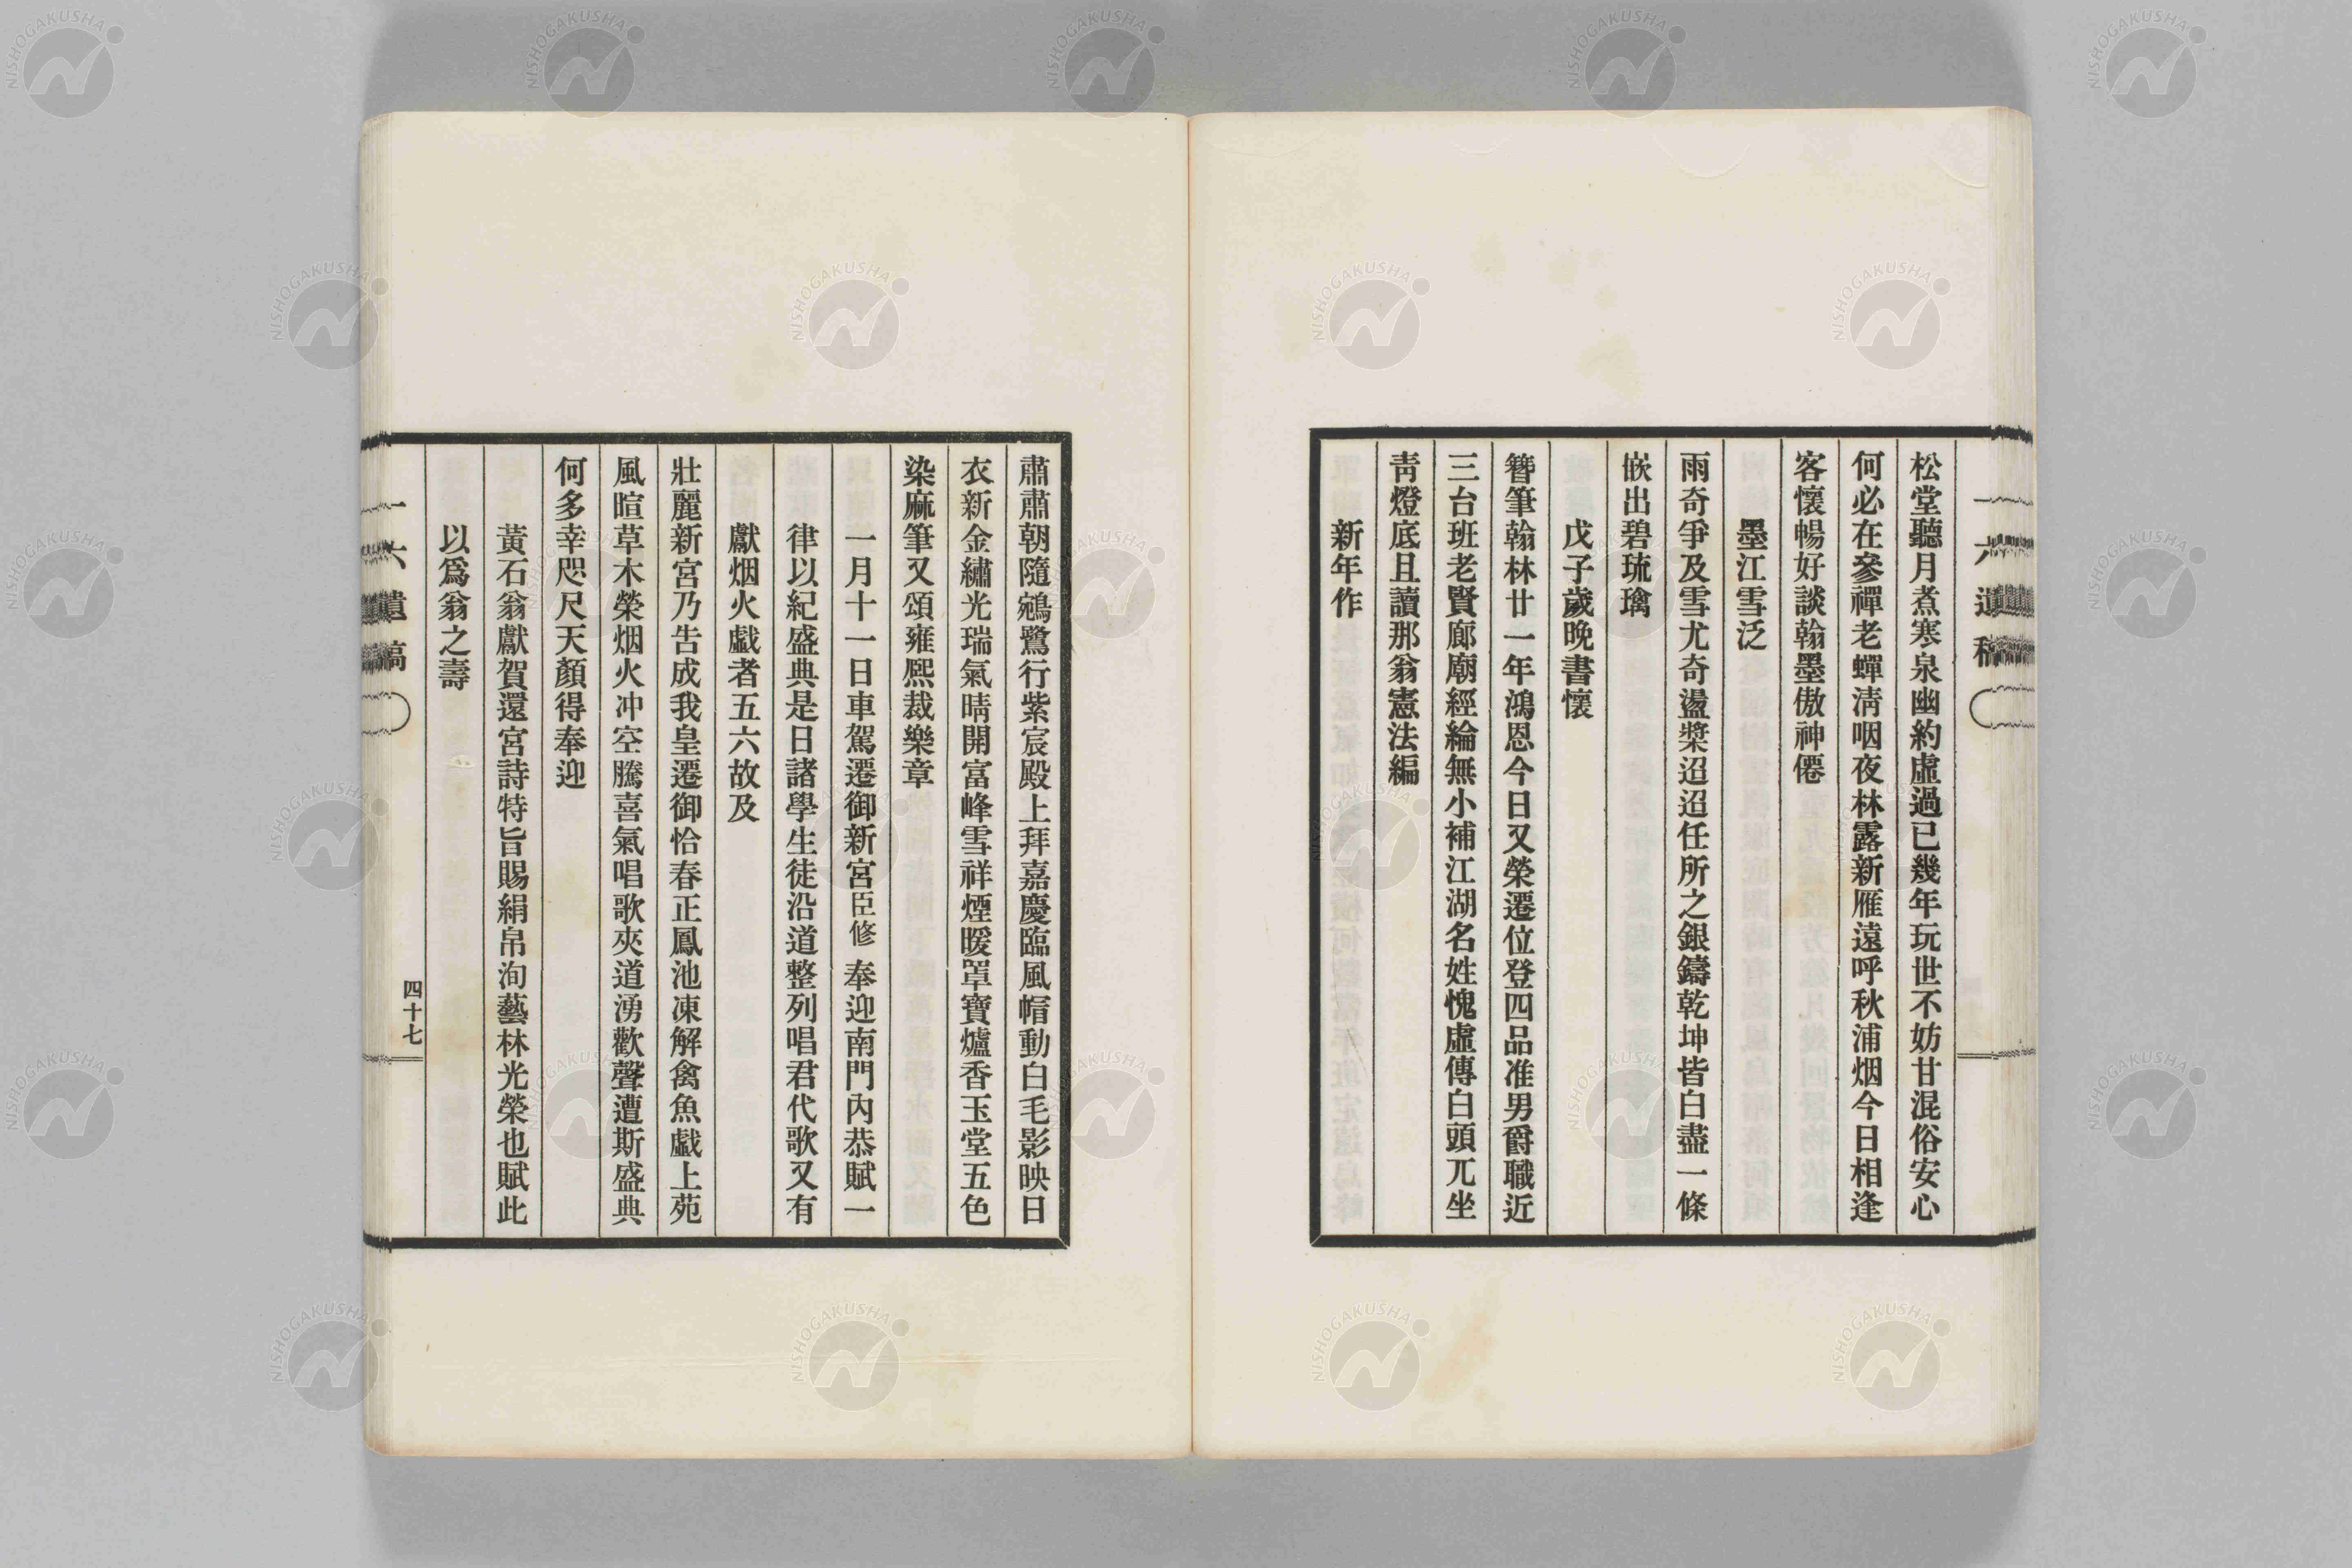 松堂聽月煮寒泉幽約虛過已幾年玩世不妨甘混俗安心
何必在參禪老蟬淸咽夜林露新雁遠呼秋浦烟今日相逢
客懷暢好談翰墨傲神僊
墨江雪泛
雨奇爭及雪尤奇盪槳迢迢任所之銀鑄乾坤皆白盡一條
嵌出碧琉璃
戊子歲晩書懷
簪筆翰林廿一年鴻恩今日又榮遷位登四品准男爵職近
三台班老賢廊廟經綸無小補江湖名姓愧虛傳白頭兀坐
靑燈底且讀那翁憲法編
新年作
一六遺稿
肅肅朝隨鵷鷺行紫宸殿上拜嘉慶臨風帽動白毛影映日
衣新金繡光瑞氣晴開富峰雪祥煙暖罩寶爐香玉堂五色
染麻筆又頌雍熙裁樂章
一月十一日車駕遷御新宮臣修 奉迎南門內恭賦一
律以紀盛典是日諸學生徒沿道整列唱君代歌又有
獻烟火戱者五六故及
壯麗新宮乃告成我皇遷御恰春正鳳池凍解禽魚戱上苑
風暄草木榮烟火冲空騰喜氣唱歌夾道湧歡聲遭斯盛典
何多幸咫尺天顏得奉迎
黃石翁獻賀還宮詩特旨賜絹帛洵藝林光榮也賦此
以爲翁之壽
一六遺稿
四十七
NISHOGAKUSHA